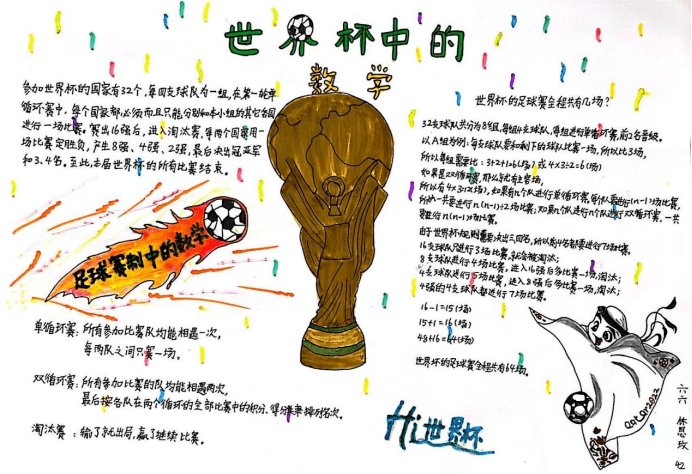 世界杯中的
数学
参加世界杯的国家有32个,每四支球队为一组,在第一轮单
循环赛中,每个国家都必须而且只能分别和本小组的其它各国
进行一场比赛。赛出16强后,进入淘汰赛,每两个国家用一
场比赛定胜负,产生8强、4强、2强,最后决出冠亚军
和3、4名。至此,本届世界杯的所有比赛结束。
足球赛制中的数学
单循环赛:所有参加比赛队均能相遇一次,
每两队之间只赛一场。
双循环赛:所有参加比赛的队均能相遇两次,
最后按各队在两个循环的全部比赛中的积分、得分率排列名次。
淘汰赛:输了就出局,赢了继续比赛。
世界杯的足球赛全程共有几场?
32支球队共分为8组,每组4支球队,每组进行单循环赛,前2名晋级。
以A组为例:每支球队要和剩下的球队比赛一场,所以比3场,
所以每组要比:3+2+1=6(场)或4×3÷2=6(场)
如果是双循环赛,那么就有主客场,
所以有4×3=12(场),如果有n个队进行单循环赛,每个队要进行(n-1)场比赛,
所以一共要进行n(n-1)÷2场比赛;如果n个队进行双循环赛,一共
要进行n(n-1)场比赛。
由于世界杯规则需要决出三四名,所以前4名都要进行7场比赛。
16支球队只进行3场比赛,就会被淘汰;
8支球队进行4场比赛,进入16强后多比赛一场,淘汰;
4支球队进行5场比赛,进入8强后多比赛一场,淘汰;
4强的4支球队都进行7场比赛。
16-1=15(场)
15+1=16(场)
48+16=64(场)
世界杯的足球赛全程共有64场。
Hi世界杯
Qatar2022
六六 林思玫 42